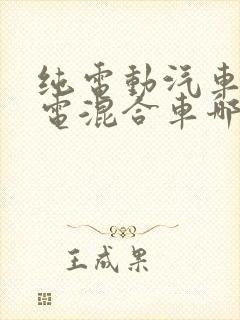 纯電動汽車
電混合車哪
王成果